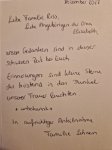 Dezember 2017
Liebe Familie Ries,
liebe Angehörigen der Oma
Elisabeth,
unsere Gedanken sind in dieser
schweren Zeit bei Euch.
Erinnerungen sind kleine Sterne
die tröstend in das Dunkel
unserer Trauer leuchten
* unbekannt *
In aufrichtiger Anteilnahme
Familie